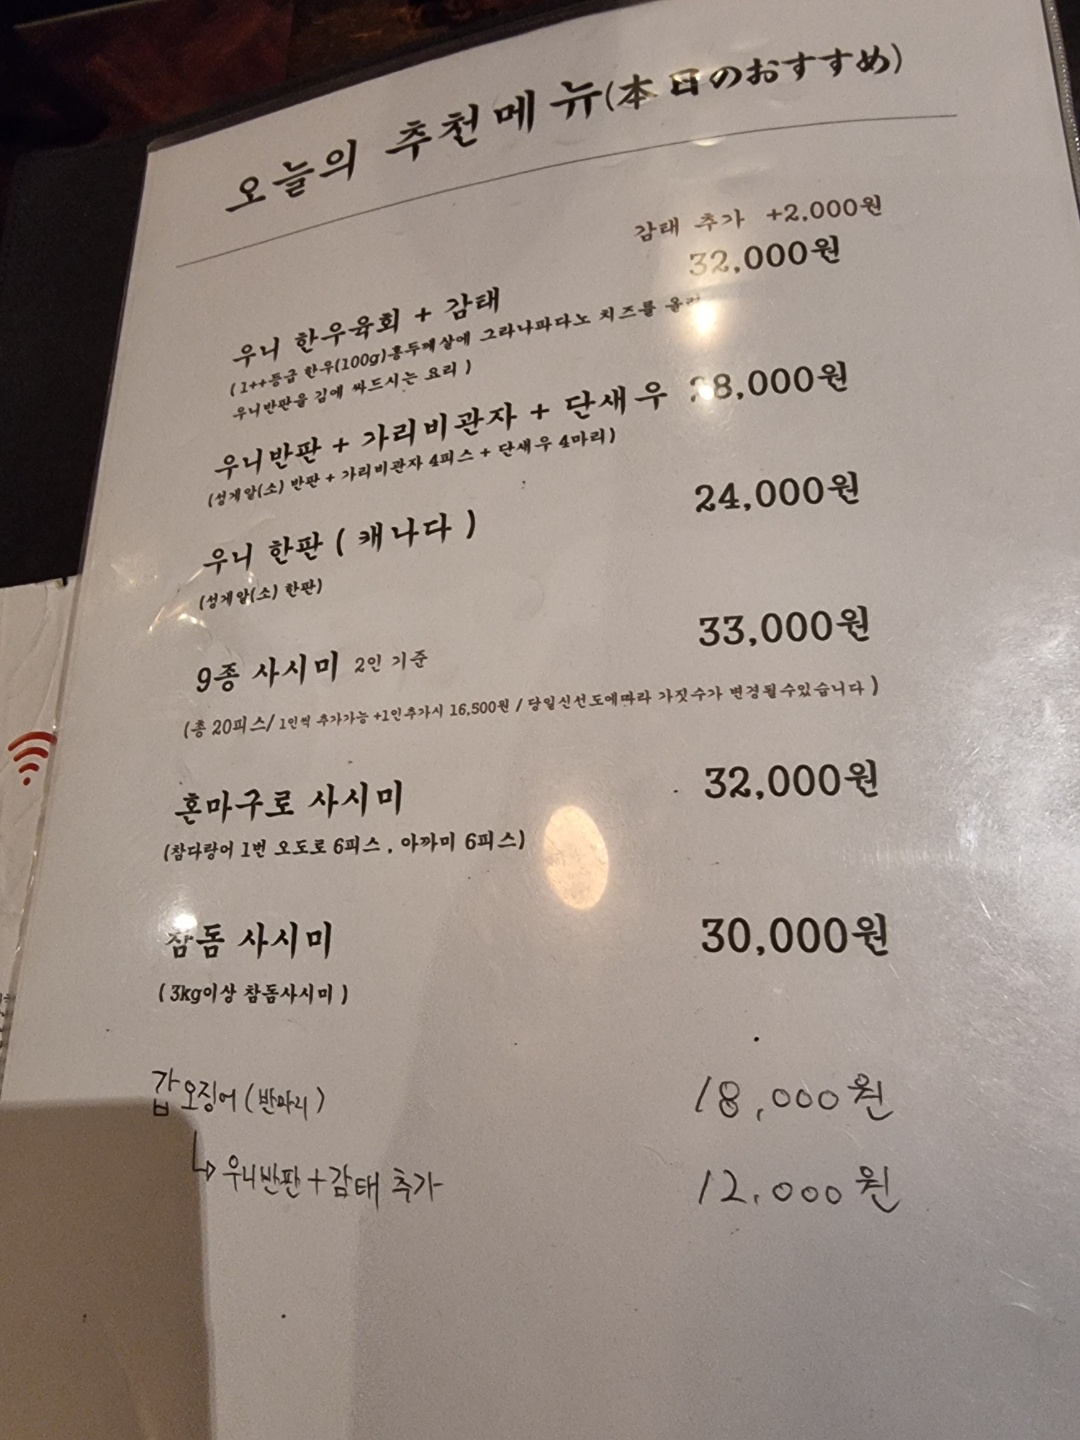 오늘의 추천메뉴(本日のおすすめ)
감태 추가 +2,000원
우니 한우육회 + 감태 32,000원
(1++등급 한우(100g)홍두깨살에 그라나파다노 치즈를
우니반판을 김에 싸드시는 요리)
우니반판 + 가리비관자 + 단새우 28,000원
(성게알(소) 반판 + 가리비관자 4피스 + 단새우 4마리)
우니 한판 ( 캐나다 ) 24,000원
(성게알(소) 한판)
9종 사시미 2인 기준 33,000원
(총 20피스/ 1인씩 추가가능 +1인추가시 16,500원 / 당일신선도에따라 가짓수가 변경될수있습니다 )
혼마구로 사시미 32,000원
(참다랑어 1번 오도로 6피스 , 아까미 6피스)
참돔 사시미 30,000원
( 3kg이상 참돔사시미 )
갑오징어 (반마리) 18,000원
↳ 우니반판 + 감태 추가 12,000원